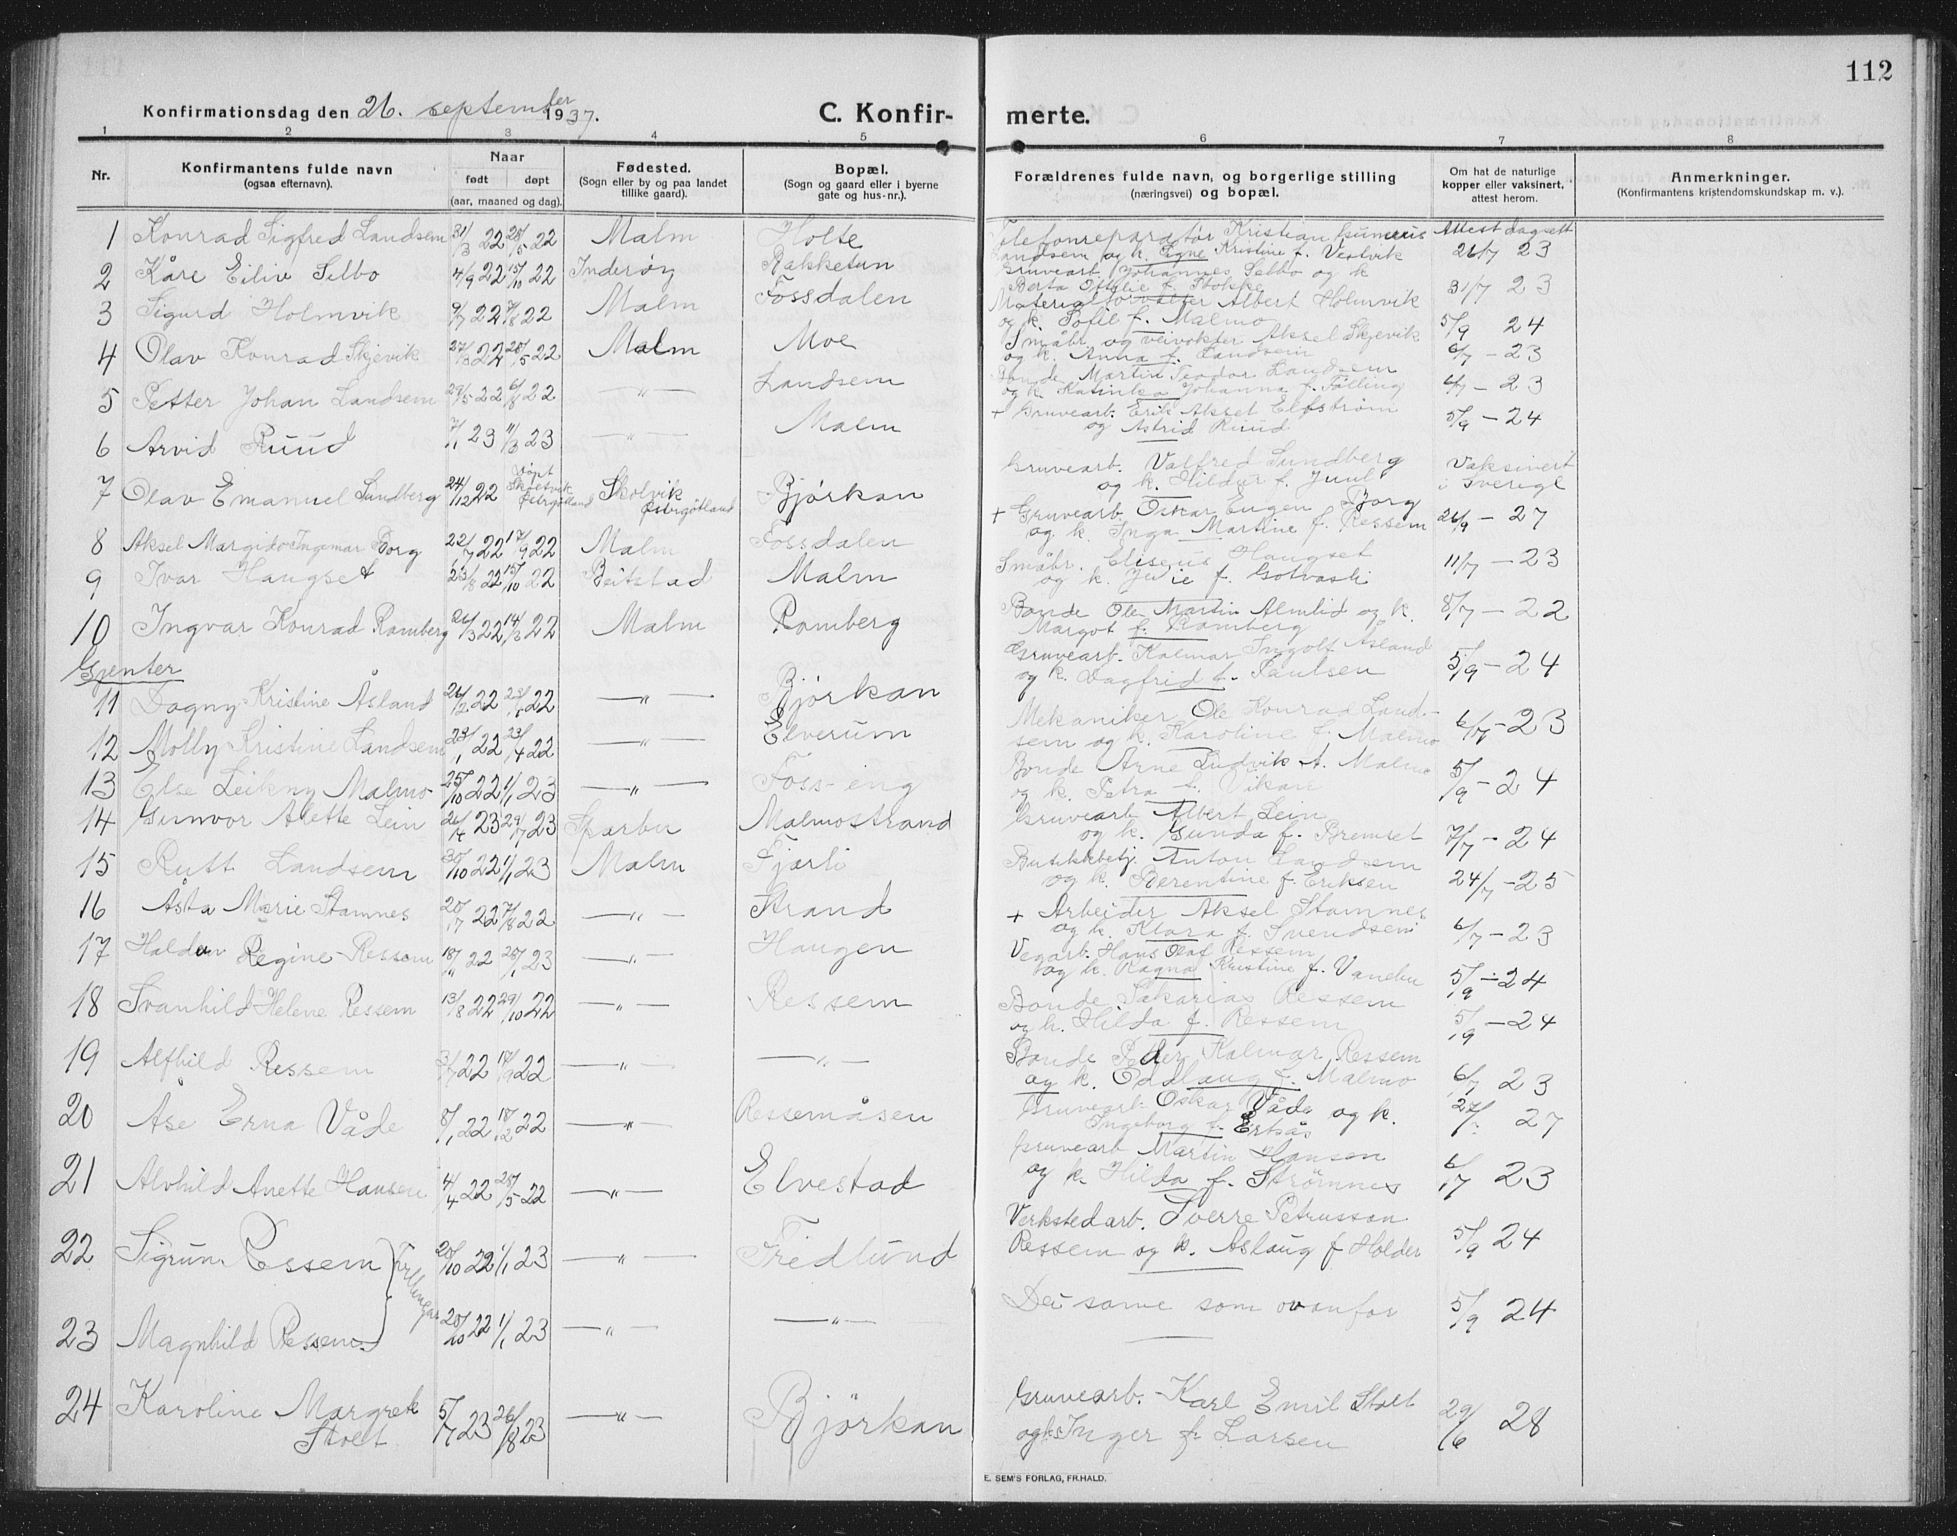 112
Konfirmationsdag den 26. september 1937.
C. Konfir- merte.
1 2 3 4 5 6 7 8
Nr.
Konfirmantens fulde navn
(ogsaa efternavn).
Naar
født døpt
(aar, maaned og dag).
Fødested.
(Sogn eller by og paa landet
tillike gaard).
Bopæl.
(Sogn og gaard eller i byerne
gate og hus-nr.).
Forældrenes fulde navn, og borgerlige stilling
(næringsvei) og bopæl.
Om hat de naturlige
kopper eller vaksinert,
attest herom.
Anmerkninger.
(Konfirmantens kristendomskundskap m. v.).
1 Konrad Sigfred Landsem 31/3 22 28/5 22 Malm Holte
Telefonreparatør Kristian Attest dagsett
Landsem og k. Signe Kristine f. Vestvik 26/7 23
2 Kåre Eiliv Selbo 4/9 22 15/10 22 Inderøy Rakketun
Gruvearb. Johannes Selbo og k
Berta Otylie f. Stokke 31/7 23
3 Sigurd Holmvik 9/7 22 27/8 22 Malm Fossdalen
Materialforvalter Albert Holmvik
og k. Sofie f. Malmo 5/9 24
4 Olav Konrad Skjevik 27/3 22 28/5 22 Malm Moe
Småbr. og veivokter Aksel Skjevik
og k. Anna f. Landsem 6/7 - 23
5 Petter Johan Landsem 29/5 22 6/8 22 — " — Landsem
Bonde Martin Teodor Landsem
og k. Katinka Johanna f. Følling 6/7 - 23
6 Arvid Ruud 7/1 23 11/3 23 — " — Malm
+ Gruvearb. Erik Aksel Elfstrøm
og Astrid Ruud 5/9 - 24
7 Olav Emanuel Lundberg 24/12 22 Døpt Østergøtland Skolvik Østergøtland Bjørkan
Gruvearb. Valfred Lundberg Vaksinert
og k. Hildur f. Juul i Sverige
8 Aksel Margido Ingemar Borg 22/7 22 17/9 22 Malm Fossdalen
+ Gruvearb. Oskar Eugen Borg
og k. Inga Martine f. Ressem 26/9 - 27
9 Ivar Haugset 23/8 22 15/10 22 Beitstad Malm
Småbr. Eliseus Haugset 11/7 - 23
og k. f.
10 Ingvar Konrad Ramberg 26/3 22 14/3 22 Malm Ramberg
Bonde Ole Martin Almlid og k. 8/7 - 22
Margot f. Ramberg
Gjenter
11 Dagny Kristine Åsland 26/2 22 22 — " — Bjørkan
Gruvearb. Kalmar Ingolf Åsland
og k. Dagfrid f. Paulsen 5/9 - 24
12 Molly Kristine Landsem 23/1 22 23/4 22 — " — Elverum
Mekaniker Ole Konrad Land-
sem og k. Karoline f. Malmo 6/7 - 23
13 Else Leikny Malmo 25/10 22 1/1 23 — " — Foss-eng
Bonde Arne Ludvik A. Malmo 5/9 - 24
og k. Petra f. Vikan
14 Gunvor Alette Lein 26/4 23 29/7 23 Sparbu Malmostrand
Gruvearb Albert Lein
og k. Gunda f. Bremset 7/7 - 24
15 Rutt Landsem 30/10 22 1/1 23 Malm Fjærli
Butikkbetj. Anton Landsem
og k. Berentine f. Eriksen 24/7 - 25
16 Åsta Marie Stamnes 20/7 22 27/8 22 — " — Strand
+ Arbeider Aksel Stamnes
og k. Klara f. Svendsen 6/7 - 23
17 Haldis Regine Ressem 18/11 22 28/1 23 — " — Haugen
Vegarb. Hans Olaf Ressem
og k. Ragna Kristine f. Vanebu 5/9 - 24
18 Svanhild Helene Ressem 13/8 22 29/10 22 — " — Ressem
Bonde Sakarias Ressem
og k. Hilda f. Ressem 5/9 - 24
19 Alfhild Ressem 3/7 22 17/9 22 — " — — " —
Bonde Peder Kalmar Ressem
og k. Oddlaug f. Malmo 6/7 23
20 Åse Erna Våde 8/1 22 18/2 22 — " — Ressemåsen
Gruvearb. Oskar Våde og k.
Ingeborg f. Ertsås 27
21 Alvhild Anette Hansen 4/4 22 28/5 22 — " — Elvestad
Gruvearb Martin Hansen
og k. Hilda f. Strømnes 6/7 23
22 Sigrun Ressem } Tvillinger 20/10 22 1/1 23 — " — Fridlund
Verkstedarb. Sverre Petrusson
Ressem og k. Aslaug f Holder 5/9 24
23 Magnhild Ressem 20/10 22 1/1 23 — " — — " —
De samme som ovanfor 5/9 24
24 Karoline Margrete
Stolt 5/7 23 26/8 23 — " — Bjørkan
Gruvearb. Karl Emil Stolt
og k. Inger f. Larsen 29/6 28
E. SEM'S FORLAG, FR.HALD.